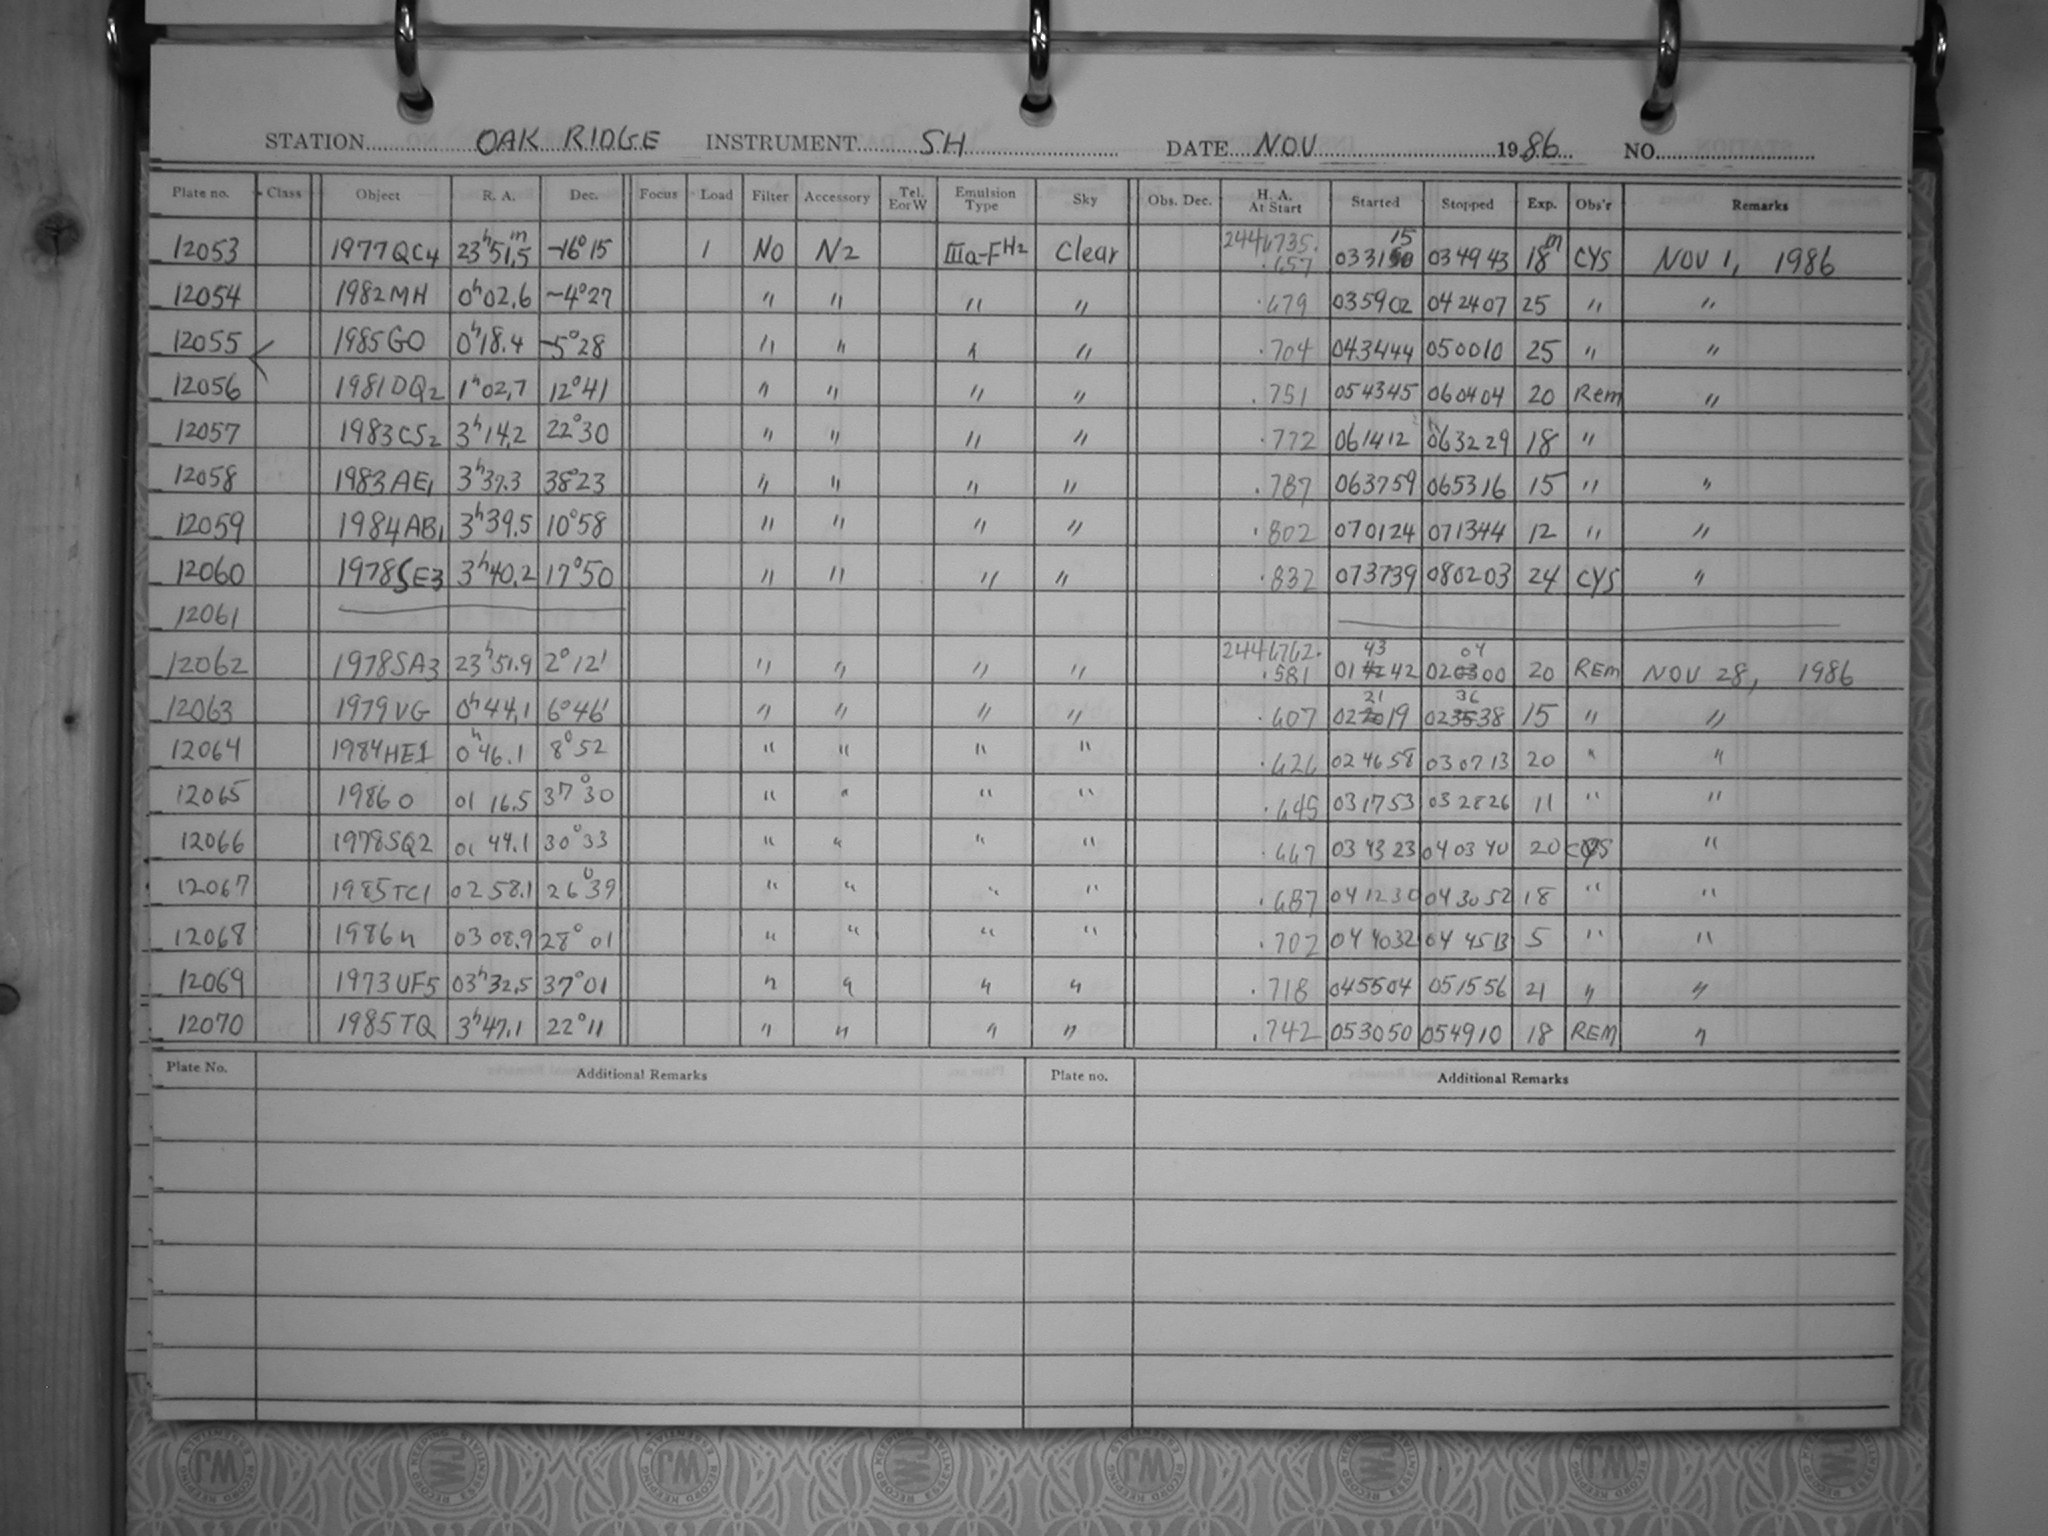 STATION OAK RIDGE INSTRUMENT SH DATE NOV 1986 NO.
Plate no. Class Object R. A. Dec. Focus Load Filter Accessory Tel. E or W Emulsion Type Sky Obs. Dec. H. A. At Start Started Stopped Exp. Obs'r Remarks
12053 1977QC4 23h51.5m -16°15 1 NO N2 IIIa-F H2 Clear 2446735. .657 033115 034943 18m CYS NOV 1, 1986
12054 1982MH 0h02.6 -4°27 " " " " .679 035902 042407 25 " "
12055 1985GO 0h18.4 -5°28 " " " " .704 043444 050010 25 " "
12056 1981DQ2 1h02.7 12°41 " " " " .751 054345 060404 20 Rem "
12057 1983CS2 3h14.2 22°30 " " " " .772 061412 063229 18 "
12058 1983AE1 3h37.3 38°23 " " " " .787 063759 065316 15 " "
12059 1984AB1 3h39.5 10°58 " " " " .802 070124 071344 12 " "
12060 1978SE3 3h40.2 17°50 " " " " .832 073739 080203 24 CYS "
12061
12062 1978SA3 23h51.9 2°12' " " " " 2446762. .581 014342 020400 20 REM NOV 28, 1986
12063 1979VG 0h44.1 6°46' " " " " .607 022119 023638 15 " "
12064 1984HE1 0h46.1 8°52 " " " " .626 024658 030713 20 " "
12065 1986o 01 16.5 37°30 " " " " .645 031753 032826 11 " "
12066 1978SQ2 01 44.1 30°33 " " " " .667 034323 040340 20 CYS "
12067 1985TC1 02 58.1 26°39 " " " " .687 041230 043052 18 " "
12068 1986n 03 08.9 28°01 " " " " .702 044032 044513 5 " "
12069 1973UF5 03h32.5 37°01 " " " " .718 045504 051556 21 " "
12070 1985TQ 3h47.1 22°11 " " " " .742 053050 054910 18 REM "
Plate No. Additional Remarks Plate no. Additional Remarks